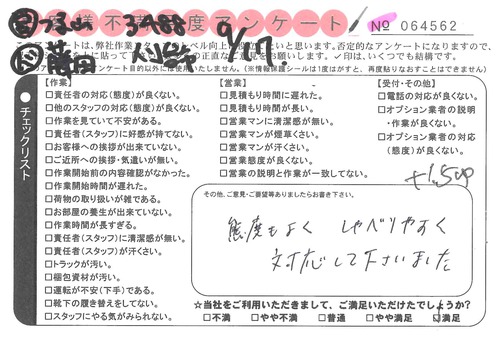 不満度アンケート
No 064562
3A88
9/17
アンケートは、弊社作業
否定的なアンケートになりますので、
お願いします。✓印は、いくつでも結構です。
アンケート目的以外には使用いたしません。(※情報保護シールは1度はがすと、再度貼りなおすことはできません)
●チェックリスト
【作業】
□責任者の対応(態度)が良くない。
□他のスタッフの対応(態度)が良くない。
□作業を見ていて不安がある。
□責任者(スタッフ)に好感が持てない。
□お客様への挨拶が出来ていない。
□ご近所への挨拶・気遣いが無い。
□作業開始前の内容確認がなかった。
□作業開始時間が遅れた。
□荷物の取り扱いが雑である。
□お部屋の養生が出来ていない。
□作業時間が長すぎる。
□責任者(スタッフ)に清潔感が無い。
□責任者(スタッフ)が汗くさい。
□トラックが汚い。
□梱包資材が汚い。
□運転が不安(下手)である。
□靴下の履き替えをしてない。
□スタッフにやる気がみられない。
【営業】
□見積もり時間に遅れた。
□見積もり時間が長い。
□営業マンに清潔感が無い。
□営業マンが煙草くさい。
□営業マンが汗くさい。
□営業態度が良くない。
□営業の説明と作業が一致してない。
【受付・その他】
□電話の対応が良くない。
□オプション業者の説明
・作業が良くない。
□オプション業者の対応
(態度)が良くない。
その他、ご意見・ご要望等ありましたらお書き下さい。
態度もよく しゃべりやすく
対応して下さいました
☆当社をご利用いただきまして、ご満足いただけたでしょうか?
□不満 □やや不満 □普通 □やや満足 □満足